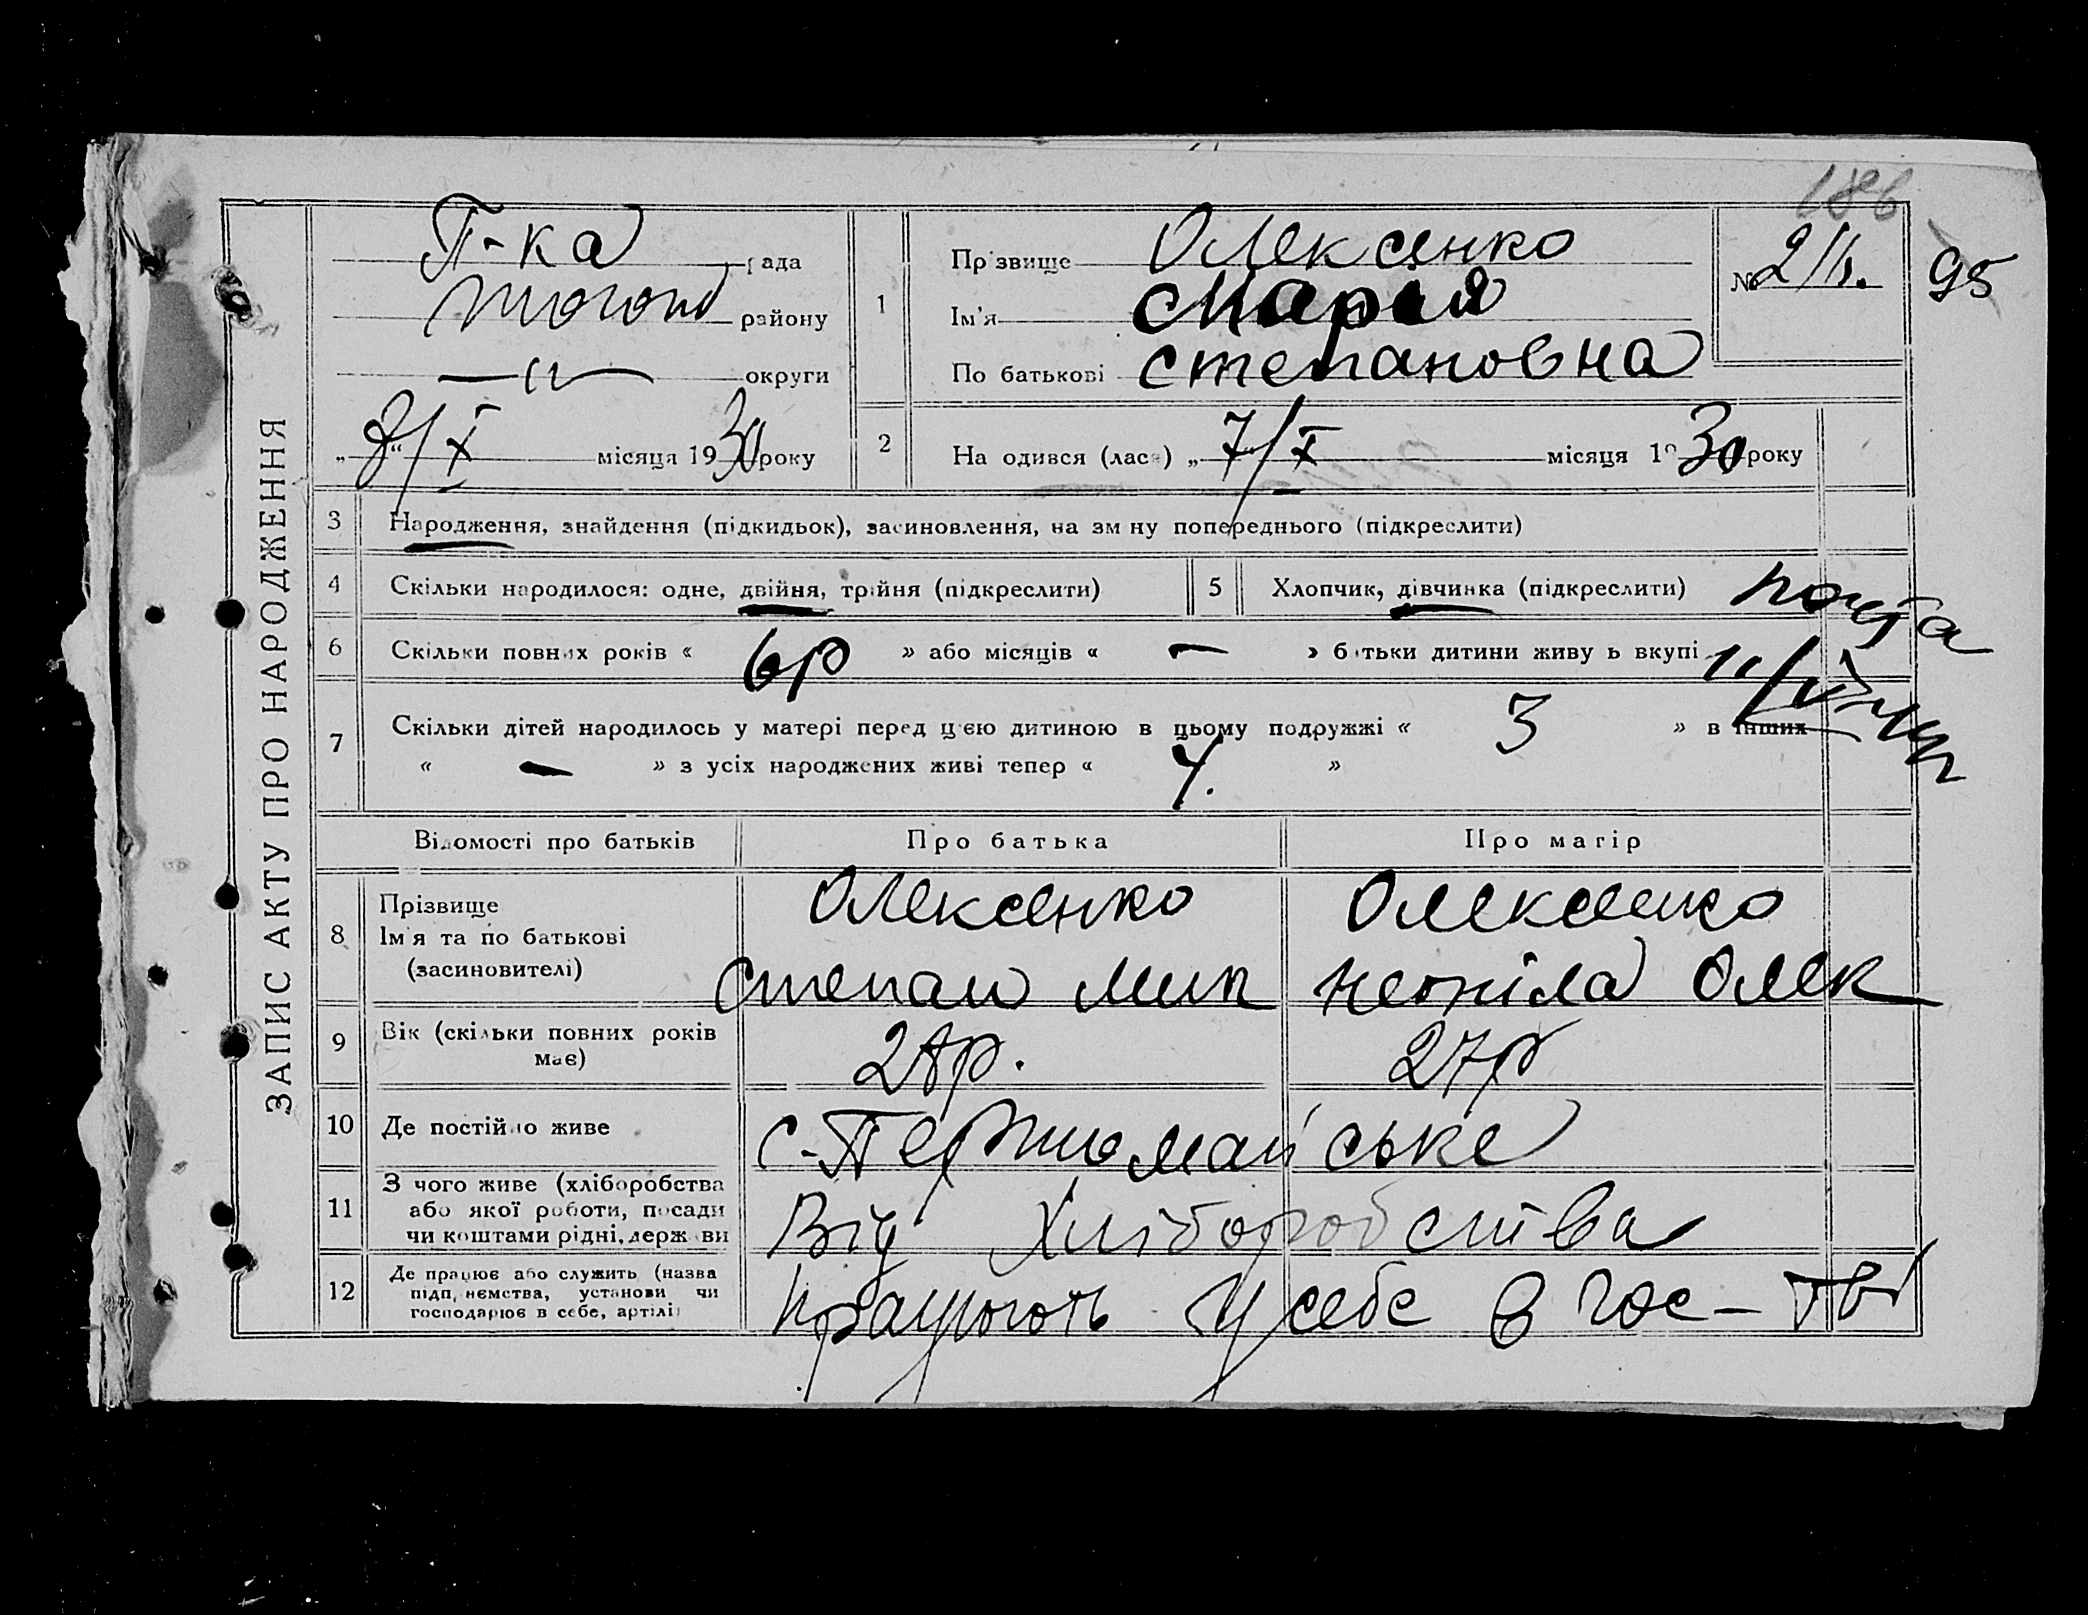 186
ЗАПИС АКТУ ПРО НАРОДЖЕННЯ
П-ка рада
району
—〃— округи
„8/X" місяця 1930 року
1 Прізвище Олексенко
Ім'я Мария
По батькові Степановна
№ 2
95
2 Народився (лась) „7/X" місяця 1930 року
3 Народження, знайдення (підкидьок), засиновлення, на зміну попереднього (підкреслити)
4 Скільки народилося: одне, двійня, трійня (підкреслити)
5 Хлопчик, дівчинка (підкреслити)
6 Скільки повних років « 6р » або місяців « — » батьки дитини живуть вкупі
7 Скільки дітей народилось у матері перед цією дитиною в цьому подружжі « 3 » в інших
« — » з усіх народжених живі тепер « 4. »
Відомості про батьків Про батька Про матір
8 Прізвище
Ім'я та по батькові
(засиновителі)
Олексенко
Степан Мик
Олексенко
Неоніла Олек
9 Вік (скільки повних років має)
28р. 27р
10 Де постійно живе
с-Першомайське
11 З чого живе (хліборобства
або якої роботи, посади
чи коштами рідні, держави
Від хліборобства
12 Де працює або служить (назва
підприємства, установи чи
господарює в себе, артілі)
працюють у себе в гос-тві